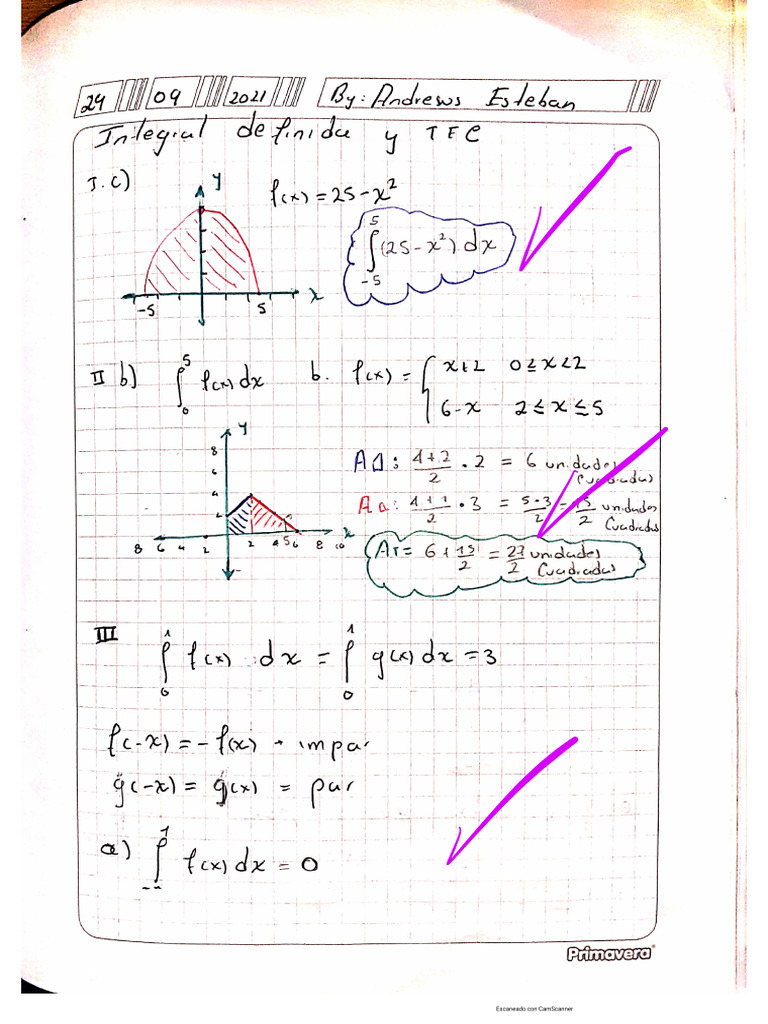 29 09 2021 By: Andrews Esteban
Integral definida y TFC
I. c) y f(x) = 25 - x²
5
∫ (25 - x²) dx
-5
-5 5 x
II b) ∫₀⁵ f(x) dx b. f(x) = { x+2 0 ≤ x < 2
6-x 2 ≤ x ≤ 5
y
8
6
4
2
8 6 4 2 2 4 5 6 8 10 x
A△: 4+2/2 · 2 = 6 unidades cuadradas
A□: 4+1/2 · 3 = 5·3/2 = 15/2 unidades Cuadradas
AT = 6 + 15/2 = 27/2 unidades Cuadradas
III ∫₀¹ f(x) dx = ∫₀¹ g(x) dx = 3
f(-x) = -f(x) → impar
g(-x) = g(x) = par
a) ∫ f(x) dx = 0
Primavera
Escaneado con CamScanner